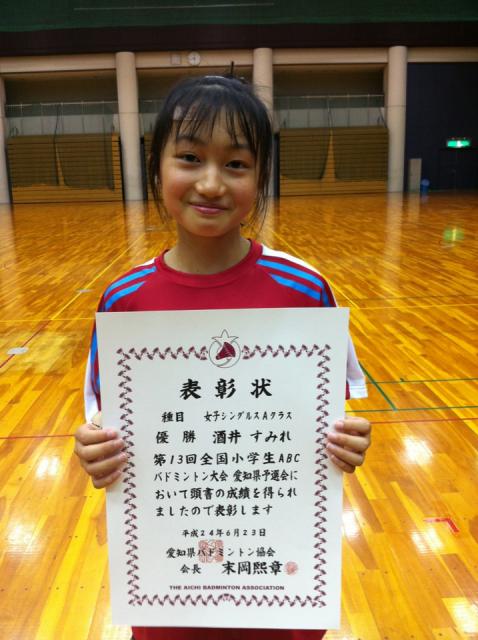 表彰状
種目 女子シングルスAクラス
優勝 酒井 すみれ
第13回全国小学生ABC
バドミントン大会 愛知県予選会に
おいて頭書の成績を得られ
ましたので表彰します
平成24年6月23日
愛知県バドミントン協会
会長 末岡熙章
THE AICHI BADMINTON ASSOCIATION